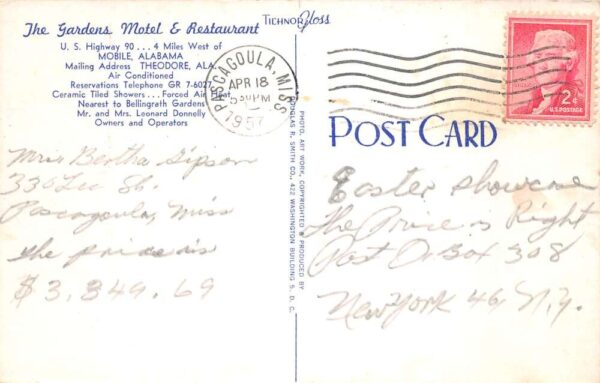 The Gardens Motel & Restaurant
U. S. Highway 90 . . . 4 Miles West of
MOBILE, ALABAMA
Mailing Address THEODORE, ALA.
Air Conditioned
Reservations Telephone GR 7-6027
Ceramic Tiled Showers . . . Forced Air Heat
Nearest to Bellingrath Gardens
Mr. and Mrs. Leonard Donnelly
Owners and Operators
TICHNOR Gloss
PASCAGOULA, MISS.
APR 18
5 30 PM
1957
2¢
U.S. POSTAGE
PHOTO, ART WORK, COPYRIGHT
DOUGLAS R. SMITH CO., 422 WASHINGTON BUILDING 5, D. C.
POST CARD
Mrs Bertha Gipson
336 Lee St.
Pascagoula, Miss
the price is
$3,849.69
Easter showcase
The Price is Right
Post O Box 308
New York 46, N.Y.